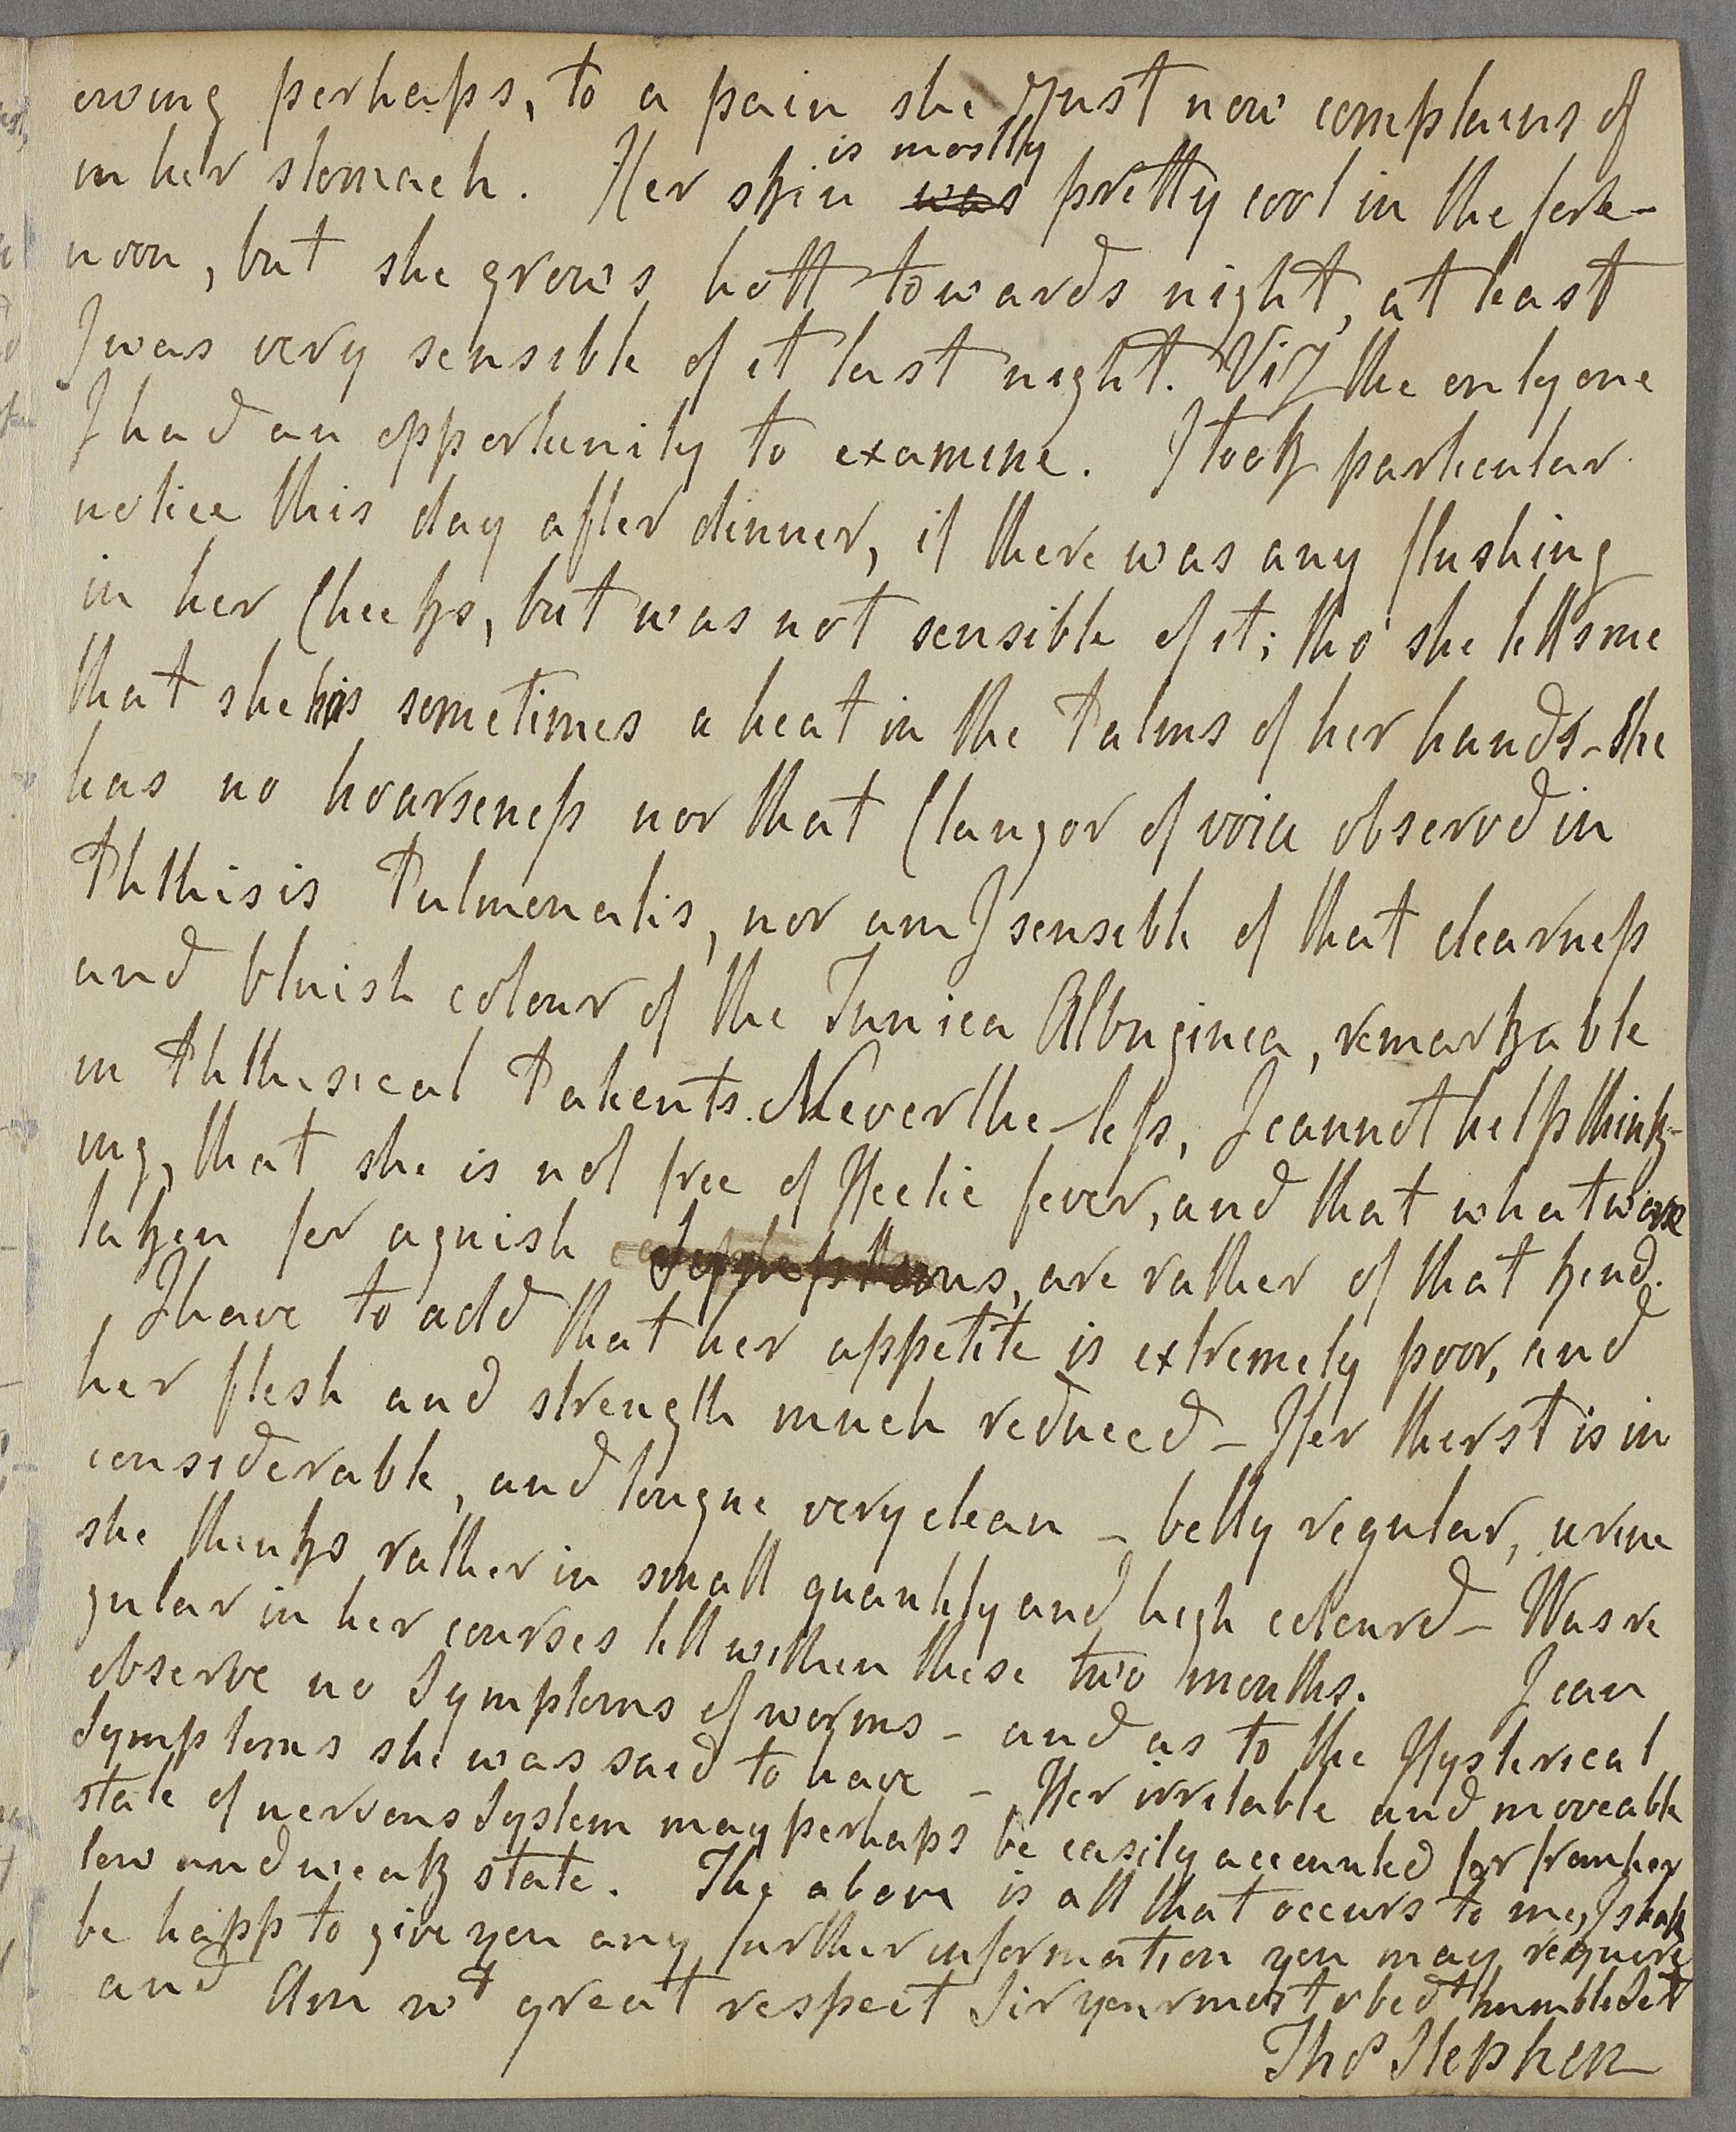 owing perhaps, to a pain she just now complains of
in her stomach. Her skin is mostly was pretty cool in the fore-
noon, but she grows hott towards night, at least
I was very sensible of it last night. Viz the only one
I had an opportunity to examine. I took particular
notice this day after dinner, if there was any flushing
in her Cheeks, but was not sensible of it; tho' she tells me
that she has sometimes a heat in the Palms of her hands - she
has no hoarseness nor that Clangor of voice observed in
Phthisis Pulmonalis, nor am I sensible of that clearness
and bluish colour of the Tunica Albuginea, remarkable
in Phthisical Patients. Never the-less, I cannot help think-
ing, that she is not free of Hectic fever, and that what were
taken for aguish Symptoms, are rather of that kind.
I have to add that her appetite is extremely poor, and
her flesh and strength much reduced - Her thirst is in
considerable, and tongue very clean - belly regular, urine
she thinks rather in small quantity and high colourd - Was re
gular in her courses till within these two months. I can
observe no Symptoms of worms - and as to the Hysterical
Symptoms she was said to have - Her irritable and moveable
state of nervous System may perhaps be easily accounted for from her
low and weak state. The above is all that occurs to me, I shall
be happ to give you any further information you may require
and Am wt great respect Sir your most obedt humble Sert
Thos Stephen